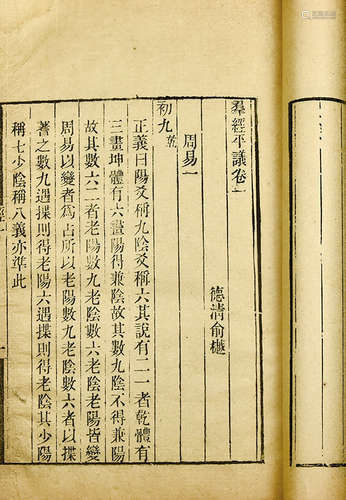 羣經平議卷一
德清俞樾
周易一
初九 乾
正義曰陽爻稱九陰爻稱六其說有二一者乾體有
三畫坤體有六畫陽得兼陰故其數九陰不得兼陽
故其數六二者老陽數九老陰數六老陰老陽皆變
周易以變者爲占所以老陽數九老陰數六者以揲
蓍之數九遇揲則得老陽六遇揲則得老陰其少陽
稱七少陰稱八義亦準此